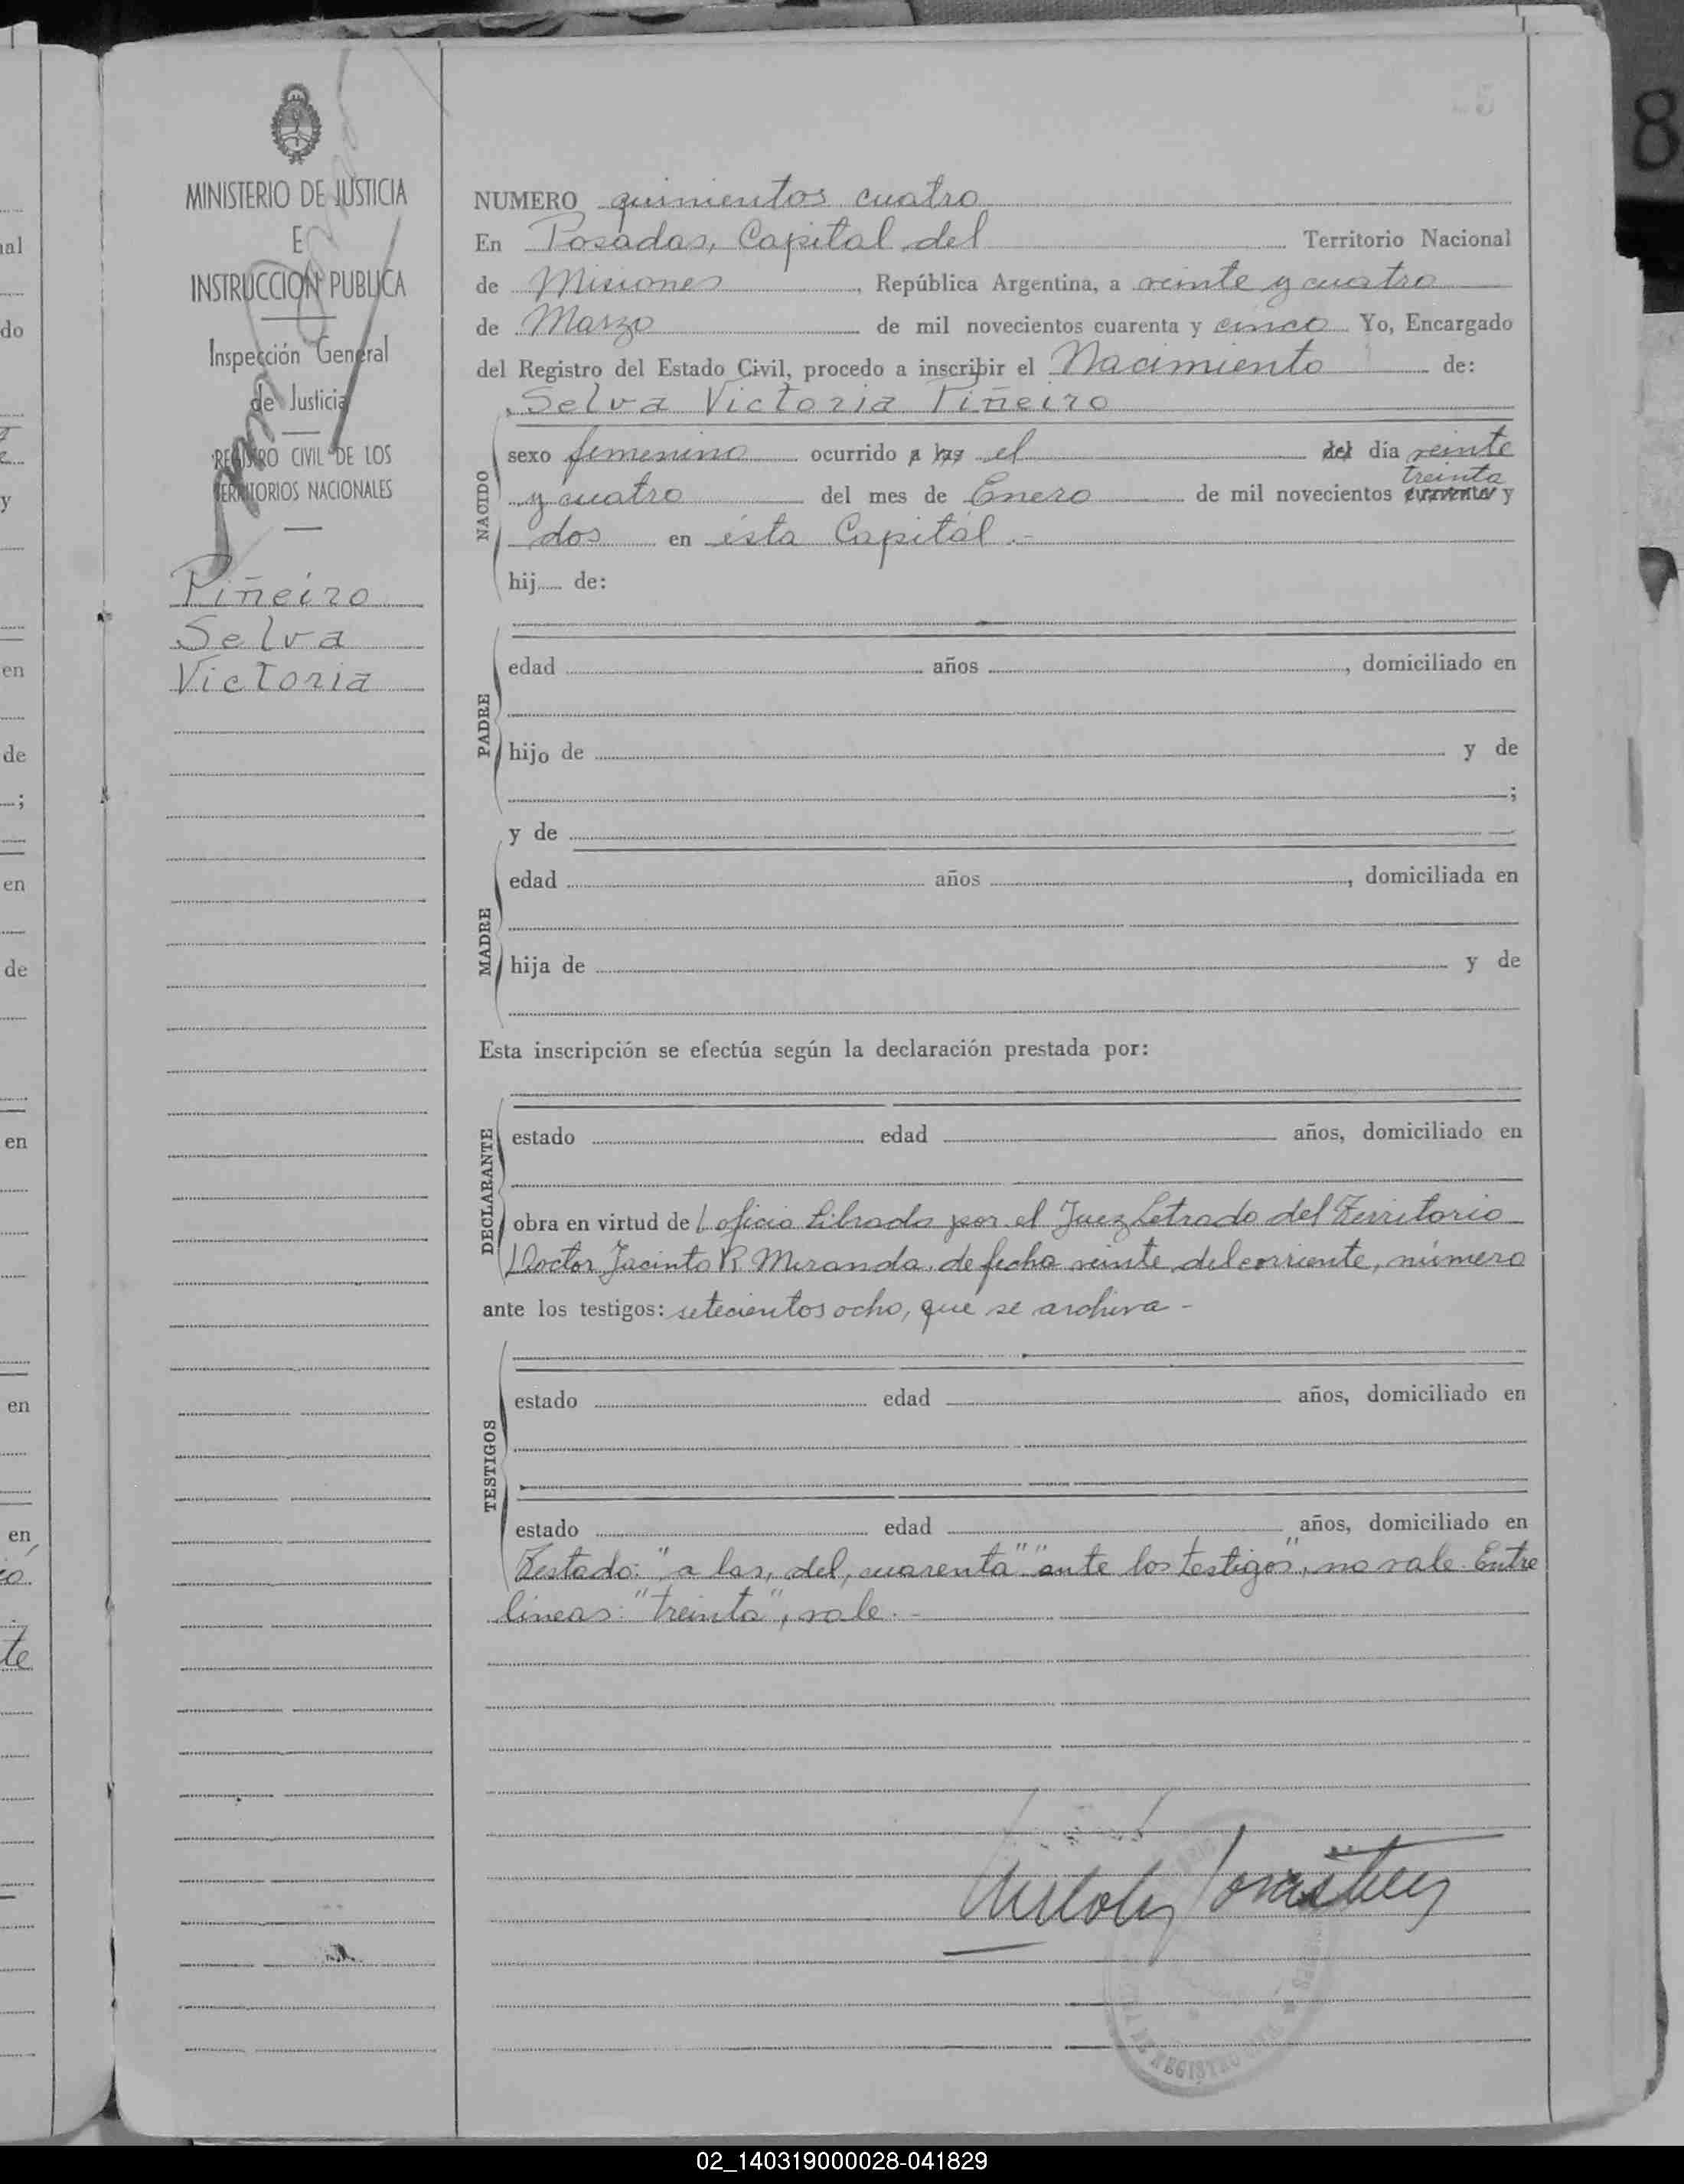 MINISTERIO DE JUSTICIA
E
INSTRUCCION PUBLICA
Inspección General
de Justicia
REGISTRO CIVIL DE LOS
TERRITORIOS NACIONALES
Piñeiro
Selva
Victoria
NUMERO quinientos cuatro
En Posadas, Capital del Territorio Nacional
de Misiones, República Argentina, a veinte y cuatro
de Marzo de mil novecientos cuarenta y cinco Yo, Encargado
del Registro del Estado Civil, procedo a inscribir el Nacimiento de:
Selva Victoria Piñeiro
NACIDO
sexo femenino ocurrido a las el del día veinte
treinta
y cuatro del mes de Enero de mil novecientos cuarenta y
dos en ésta Capital.-
hij..... de:
PADRE
edad años , domiciliado en
hijo de y de
;
y de
MADRE
edad años , domiciliada en
hija de y de
Esta inscripción se efectúa según la declaración prestada por:
DECLARANTE
estado edad años, domiciliado en
obra en virtud de / oficio librado por el Juez Letrado del Territorio
Doctor Jacinto R Miranda de fecha veinte del corriente, número
ante los testigos: setecientos ocho, que se archiva -
TESTIGOS
estado edad años, domiciliado en
estado edad años, domiciliado en
Testado: "a las, del, cuarenta" "ante los testigos", no vale. Entre
lineas: "treinta", vale.-
8
al
do
y
en
de
;
en
de
en
en
en
te
02_140319000028-041829